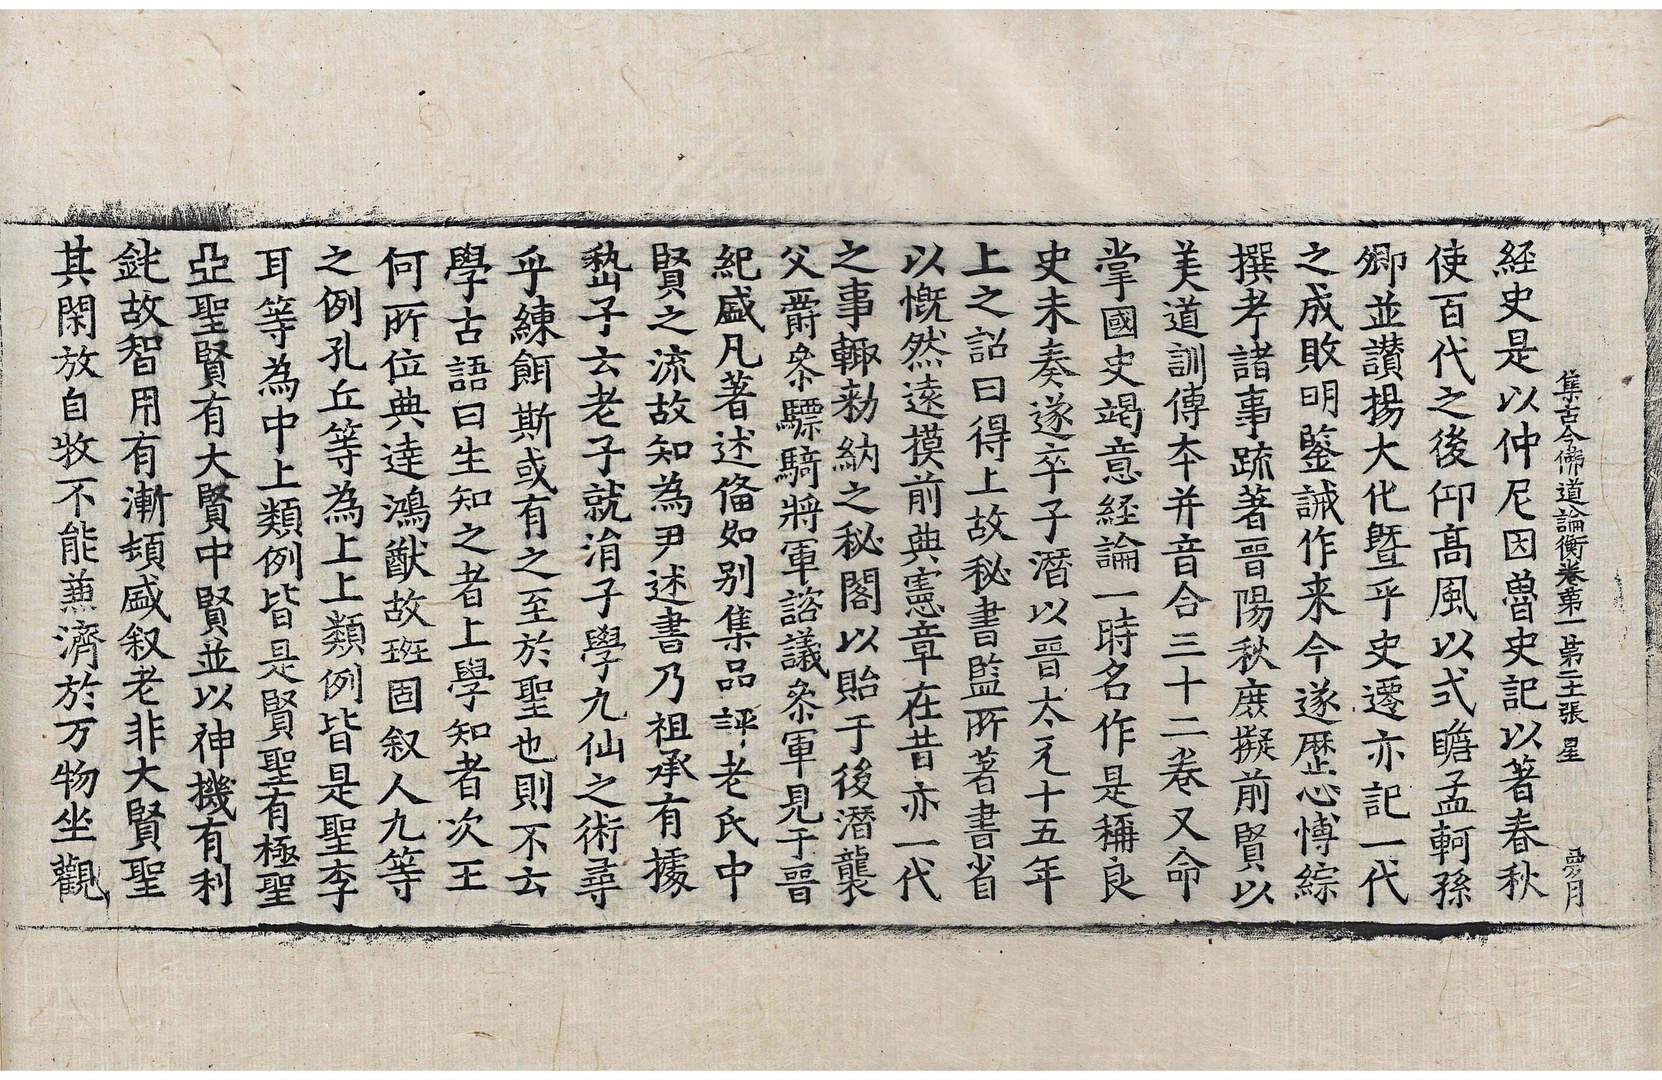 集古今佛道論衡卷第一 第二十張 星 夢月
經史是以仲尼因魯史記以著春秋
使百代之後仰髙風以式瞻孟軻孫
卿並讃揚大化曁乎史遷亦記一代
之成敗明鑒誡作来今遂歴心博綜
撰考諸事䟽著晋陽秋庶擬前賢以
美道訓傳夲并音合三十二卷又命
掌國史竭意經論一時名作是稱良
史未奏遂卒子潛以晋太元十五年
上之詔曰得上故秘書監所著書省
以慨然遠摸前典憲章在昔亦一代
之事輙勑納之秘閣以貽于後潛襲
父爵叅驃騎將軍諮議叅軍見于晋
紀盛凡著述俻如別集品評老氏中
賢之流故知為尹述書乃祖承有據
嵆子云老子就涓子學九仙之術尋
乎練餌斯或有之至於聖也則不云
學古語曰生知之者上學知者次王
何所位典達鴻猷故班固叙人九等
之例孔丘等為上上類例皆是聖李
耳等為中上類例皆是賢聖有極聖
亞聖賢有大賢中賢並以神機有利
鈍故智用有漸頓盛叙老非大賢聖
其閑放自牧不能兼濟於万物坐觀